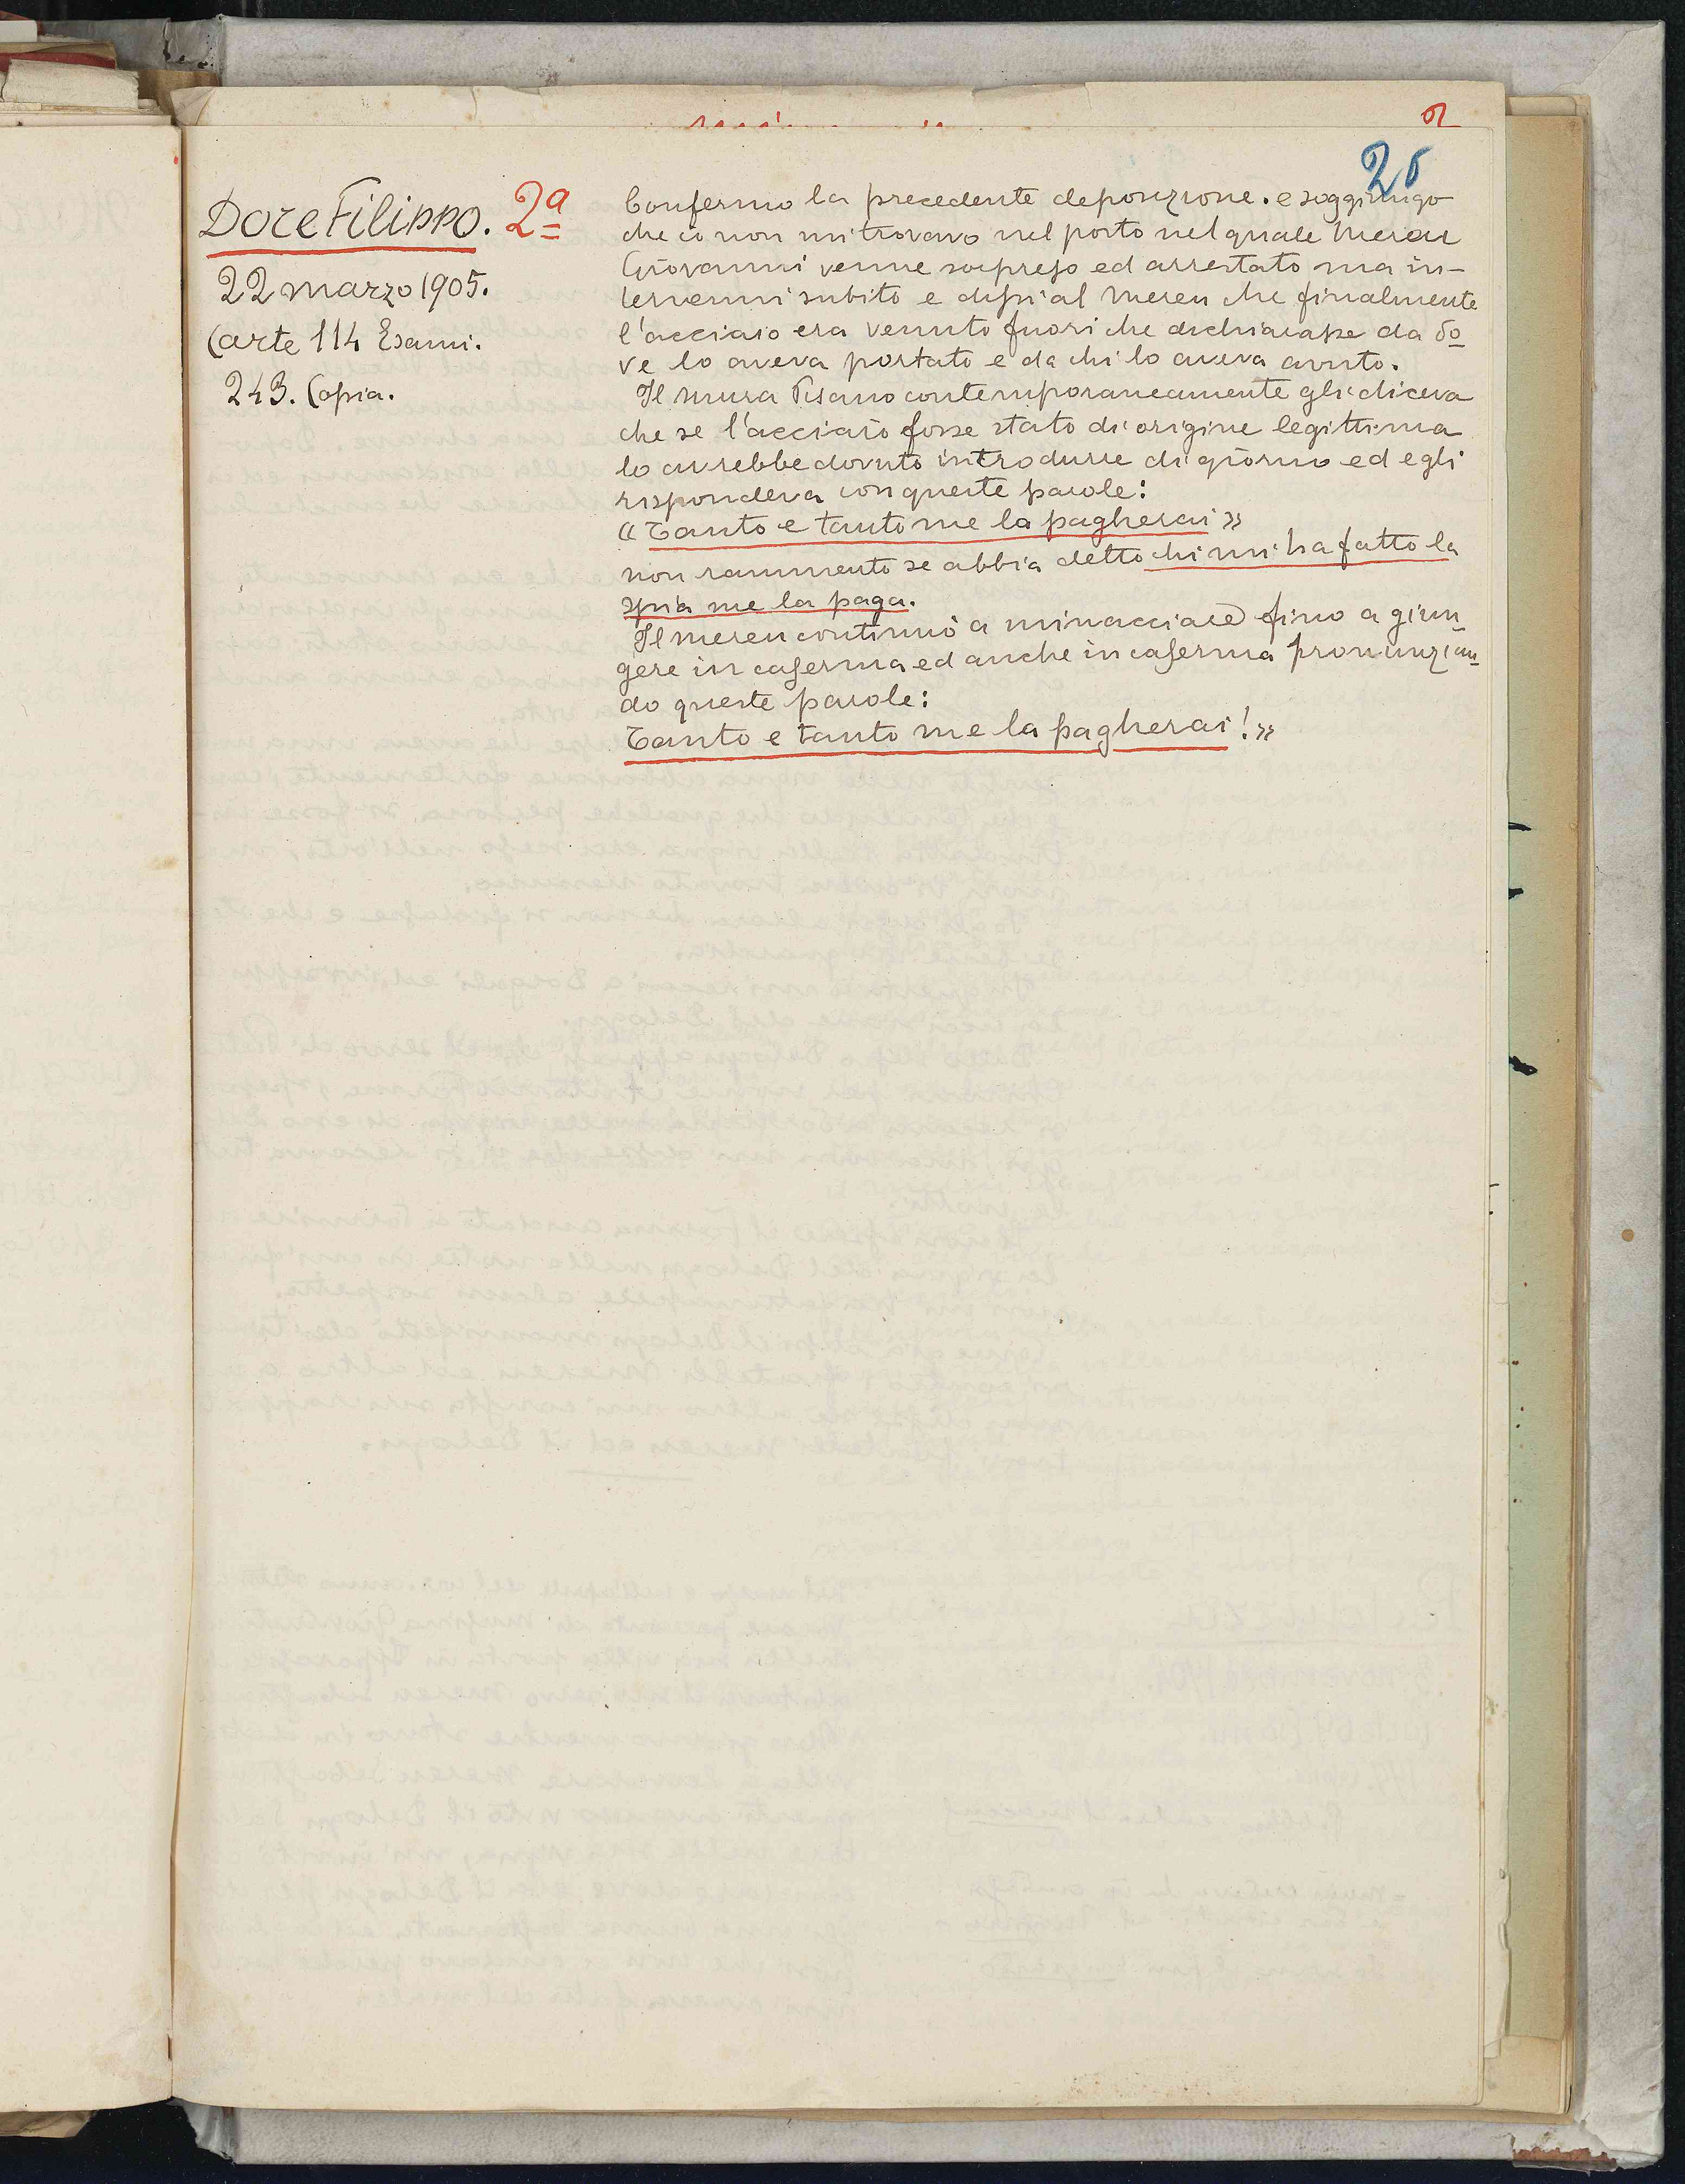 26
Dore Filippo. 2ª
22 marzo 1905.
Carte 114 Esami.
243. Copia.
Confermo la precedente deposizione. e soggiungo
che io non mi trovavo nel posto nel quale Mereu
Giovanni venne sorpreso ed arrestato ma in-
tervenni subito e dissi al Mereu che finalmente
l'acciaio era venuto fuori che dichiarasse da do
ve lo aveva portato e da chi lo aveva avuto.
Il Mura Pisano contemporaneamente gli diceva
che se l'acciaio fosse stato di origine legittima
lo avrebbe dovuto introdurre di giorno ed egli
rispondeva con queste parole:
« Tanto e tanto me la pagherai »
non rammento se abbia detto chi mi ha fatto la
spia me la paga.
Il Mereu continuò a minacciare fino a giun
gere in caserma ed anche in caserma pronunzian
do queste parole:
Tanto e tanto me la pagherai! »